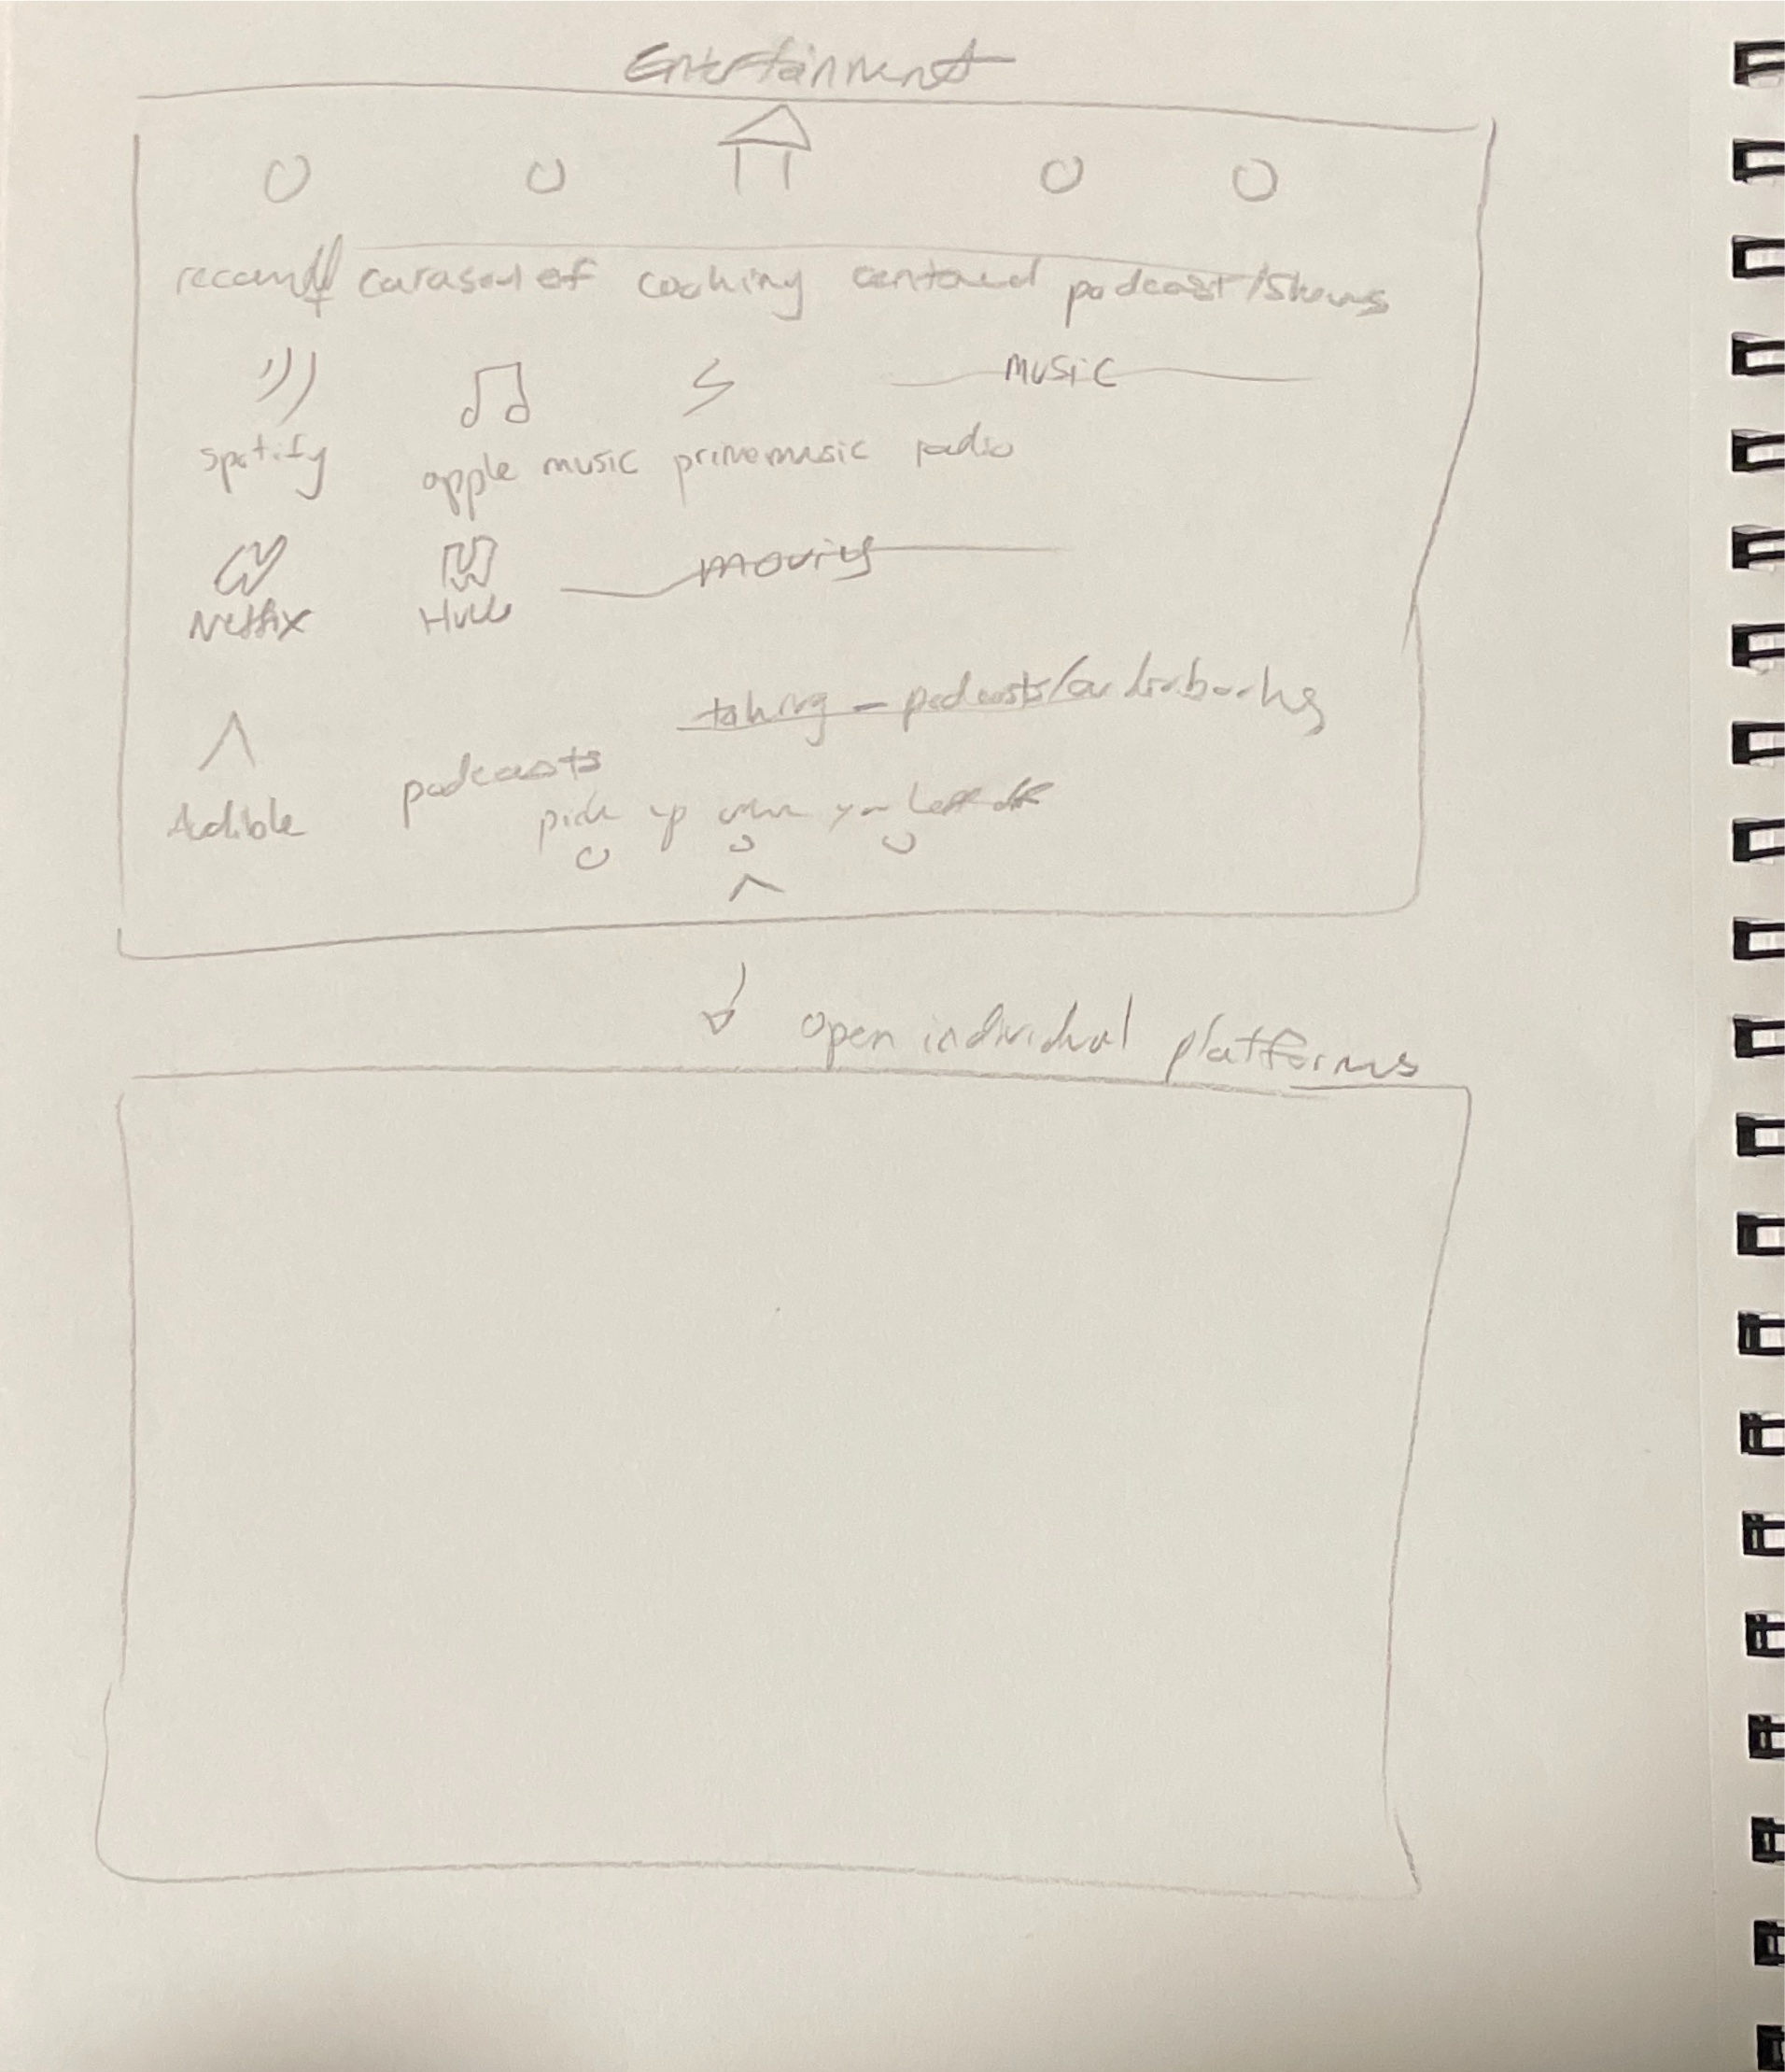 Entertainment
carasoul of cooking centered podcast/shows
music
spotify apple music primemusic radio
movies
Netflix Hulu
talking - podcasts/audiobooks
Audible podcasts
pick up where you left off
open individual platforms